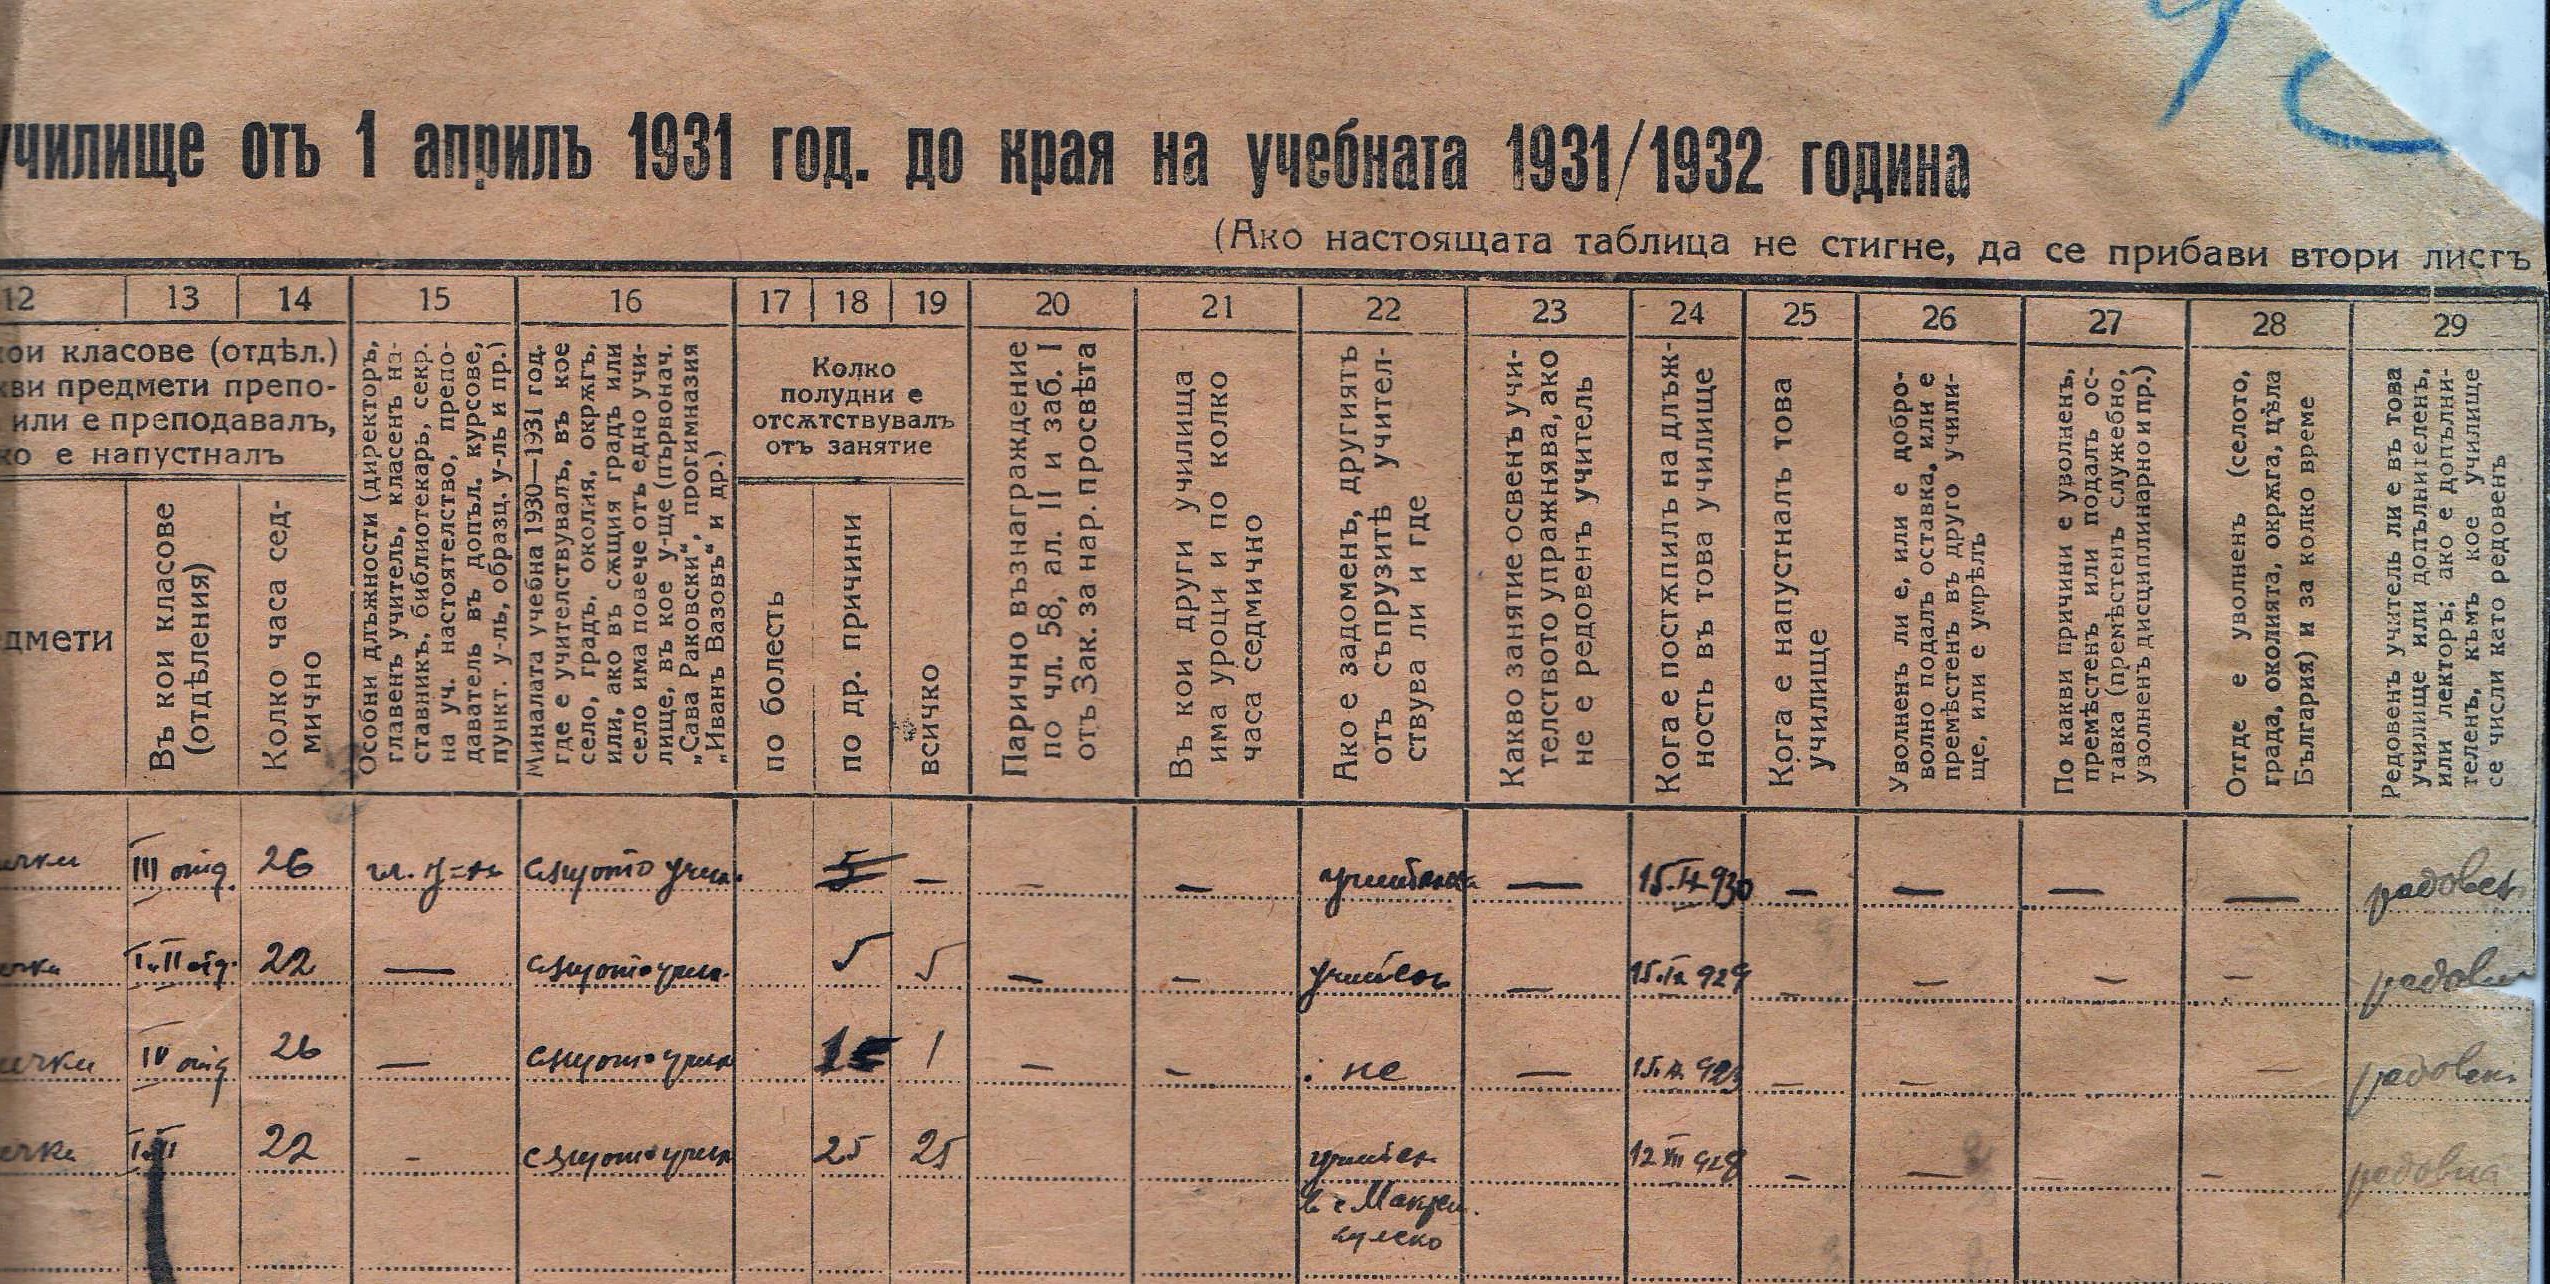 училище отъ 1 априлъ 1931 год. до края на учебната 1931/1932 година
(Ако настоящата таблица не стигне, да се прибави втори листъ
12 13 14 15 16 17 18 19 20 21 22 23 24 25 26 27 28 29
ои класове (отдѣл.)
кви предмети препо-
или е преподавалъ,
ко е напусналъ
дмети
Въ кои класове
(отдѣления)
Колко часа сед-
мично
Особни длъжности (директоръ,
главенъ учитель, класенъ на-
ставникъ, библиотекарь, секр.
на уч. настоятелство, препо-
даватель въ допъл. курсове,
пункт. у-ль, образц. у-ль и пр.)
Миналата учебна 1930—1931 год.
где е учителствувалъ, въ кое
село, градъ, околия, окрѫгъ,
или, ако въ сѫщия градъ или
село има повече отъ едно учи-
лище, въ кое у-ще (първонач.
„Сава Раковски“, прогимназия
„Иванъ Вазовъ“ и др.)
Колко
полудни е
отсѫтствувалъ
отъ занятие
по болесть
по др. причини
всичко
Парично възнаграждение
по чл. 58, ал. II и заб. I
отъ Зак. за нар. просвѣта
Въ кои други училища
има уроци и по колко
часа седмично
Ако е задоменъ, другиятъ
отъ съпрузитѣ учител-
ствува ли и где
Какво занятие освенъ учи-
телството упражнява, ако
не е редовенъ учитель
Кога е постѫпилъ на длъж-
ность въ това училище
Кога е напусталъ това
училище
Уволненъ ли е, или е добро-
волно подалъ оставка, или е
премѣстенъ въ друго учили-
ще, или е умрѣлъ
По какви причини е уволненъ,
премѣстенъ или подалъ ос-
тавка (премѣстенъ служебно,
уволненъ дисциплинарно и пр.)
Отгде е уволненъ (селото,
града, околията, окрѫга, цѣла
България) и за колко време
Редовенъ учитель ли е въ това
училище или допълнителенъ,
или лекторъ; ако е допълни-
теленъ, къмъ кое училище
се числи като редовенъ
ички III отд. 26 гл. у=л сѫщото учил. 5 — — — — 15.IX 930 — — — — редовен
ички I и II отд. 22 — сѫщото учил. 5 5 — — учител — 15.IX 929 — — — — редовн
ички IV отд 26 — сѫщото учил 1 1 — — не — — — — редовен
ички I II 22 - сѫщото учил 25 25 учител 12 XII 928 — — — — редовна